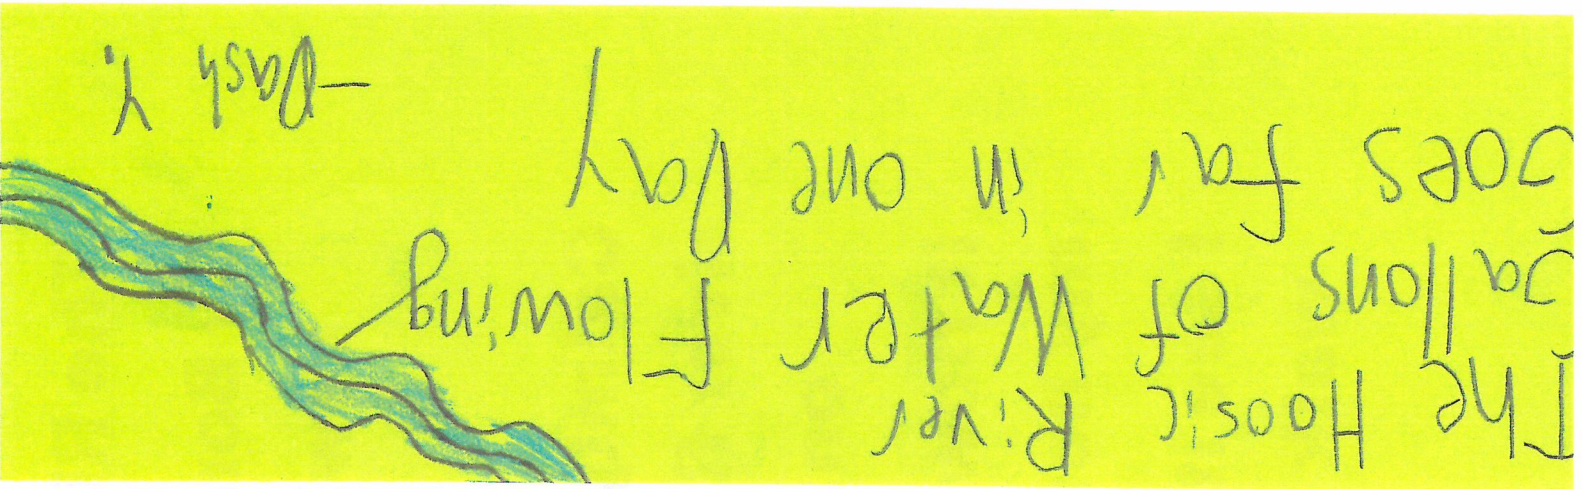 The Hoosic River
Gallons of Water Flowing
Goes far in one Day
-Dash Y.